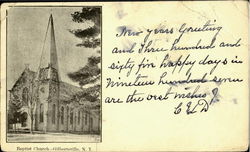 New years Greeting
and three hundred and
sixty five happy days in
Nineteen hundred seven
are the best wishes of
Baptist Church—Gilbertsville, N. Y.